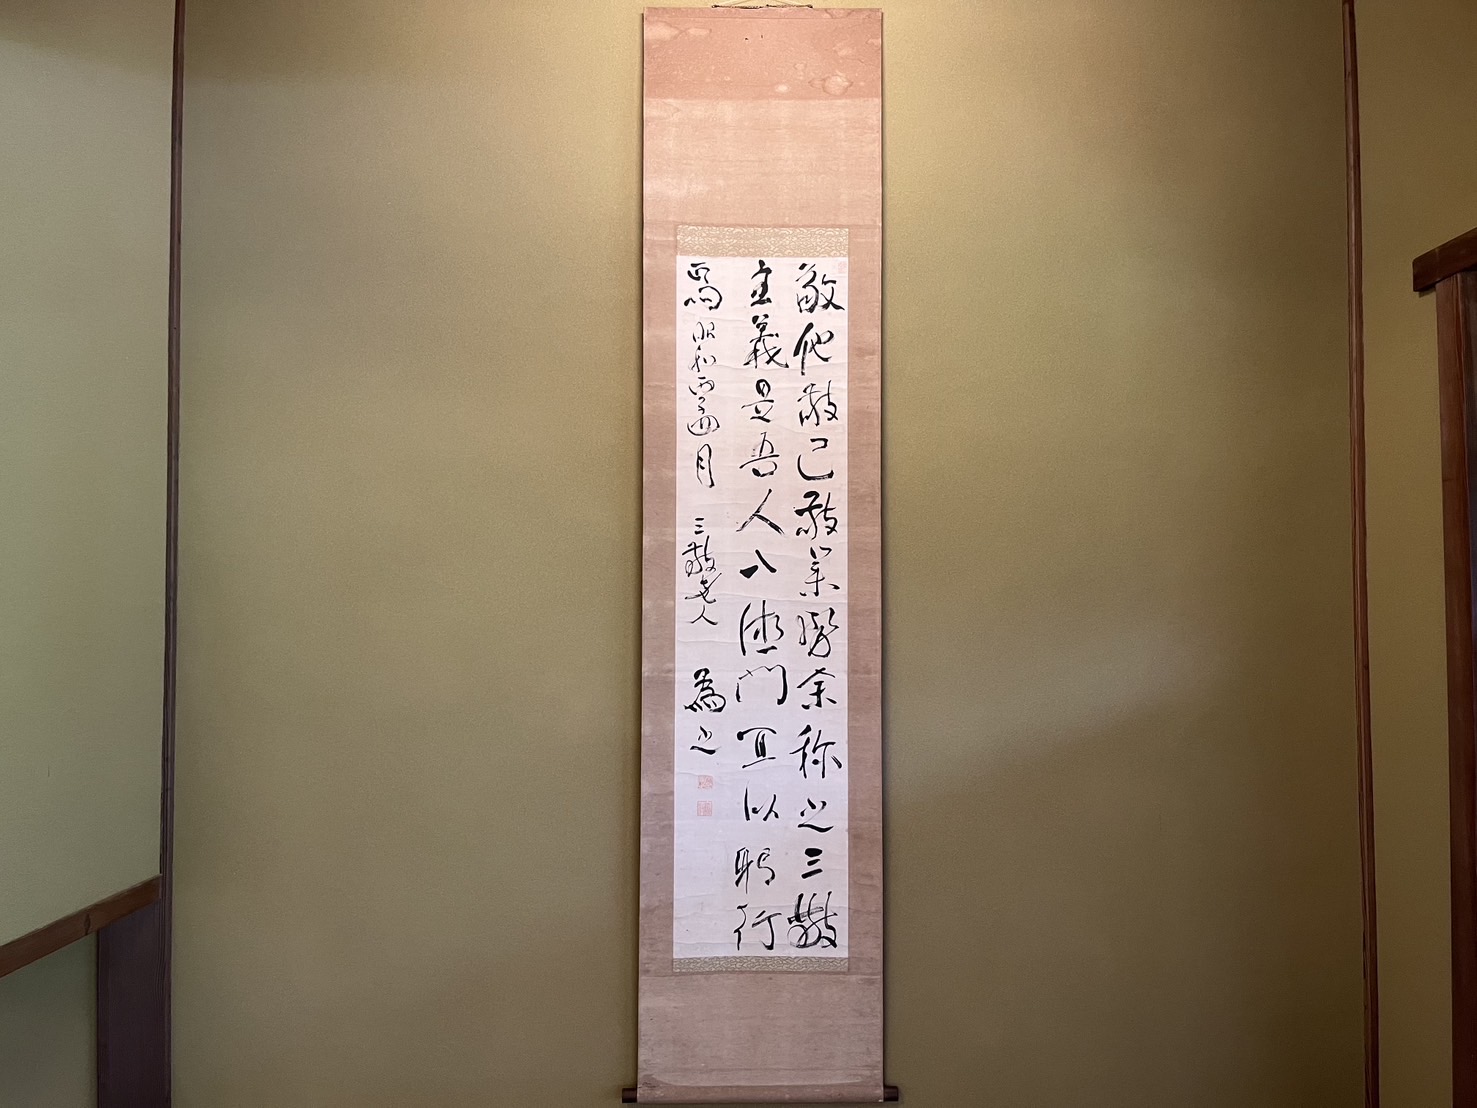 敬他敬己敬業余称之三敬
主義是吾人入徳門宜以躬行
焉昭和丙子四月 三敬老人 為之